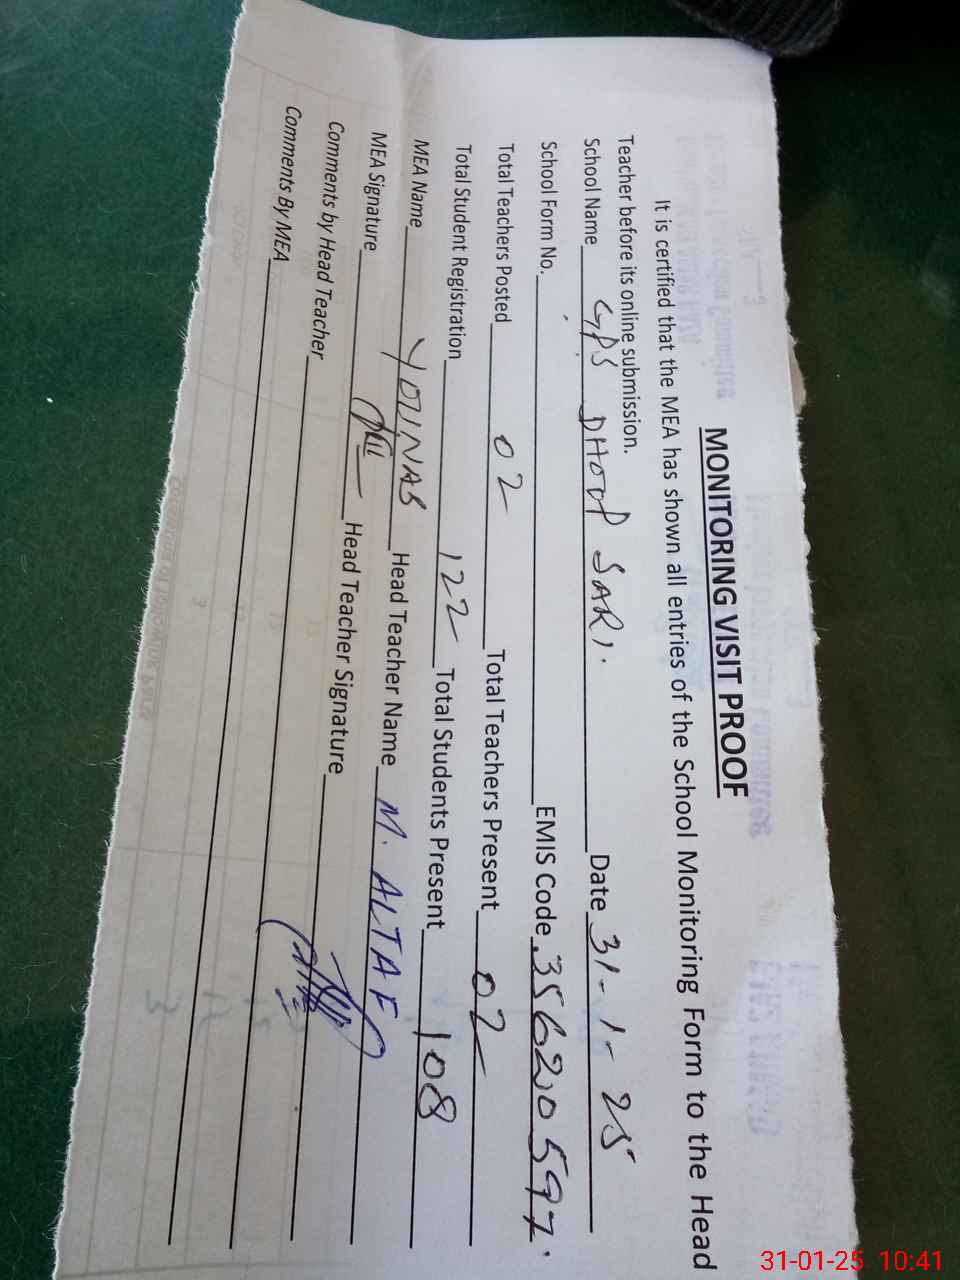 MONITORING VISIT PROOF
It is certified that the MEA has shown all entries of the School Monitoring Form to the Head
Teacher before its online submission.
School Name GPS DHOOP SARI. Date 31-1-25
School Form No. EMIS Code 35620597.
Total Teachers Posted 02 Total Teachers Present 02
Total Student Registration 122 Total Students Present 108
MEA Name YOUNAS Head Teacher Name M. ALTAF
MEA Signature Head Teacher Signature
Comments by Head Teacher
Comments By MEA
31-01-25 10:41